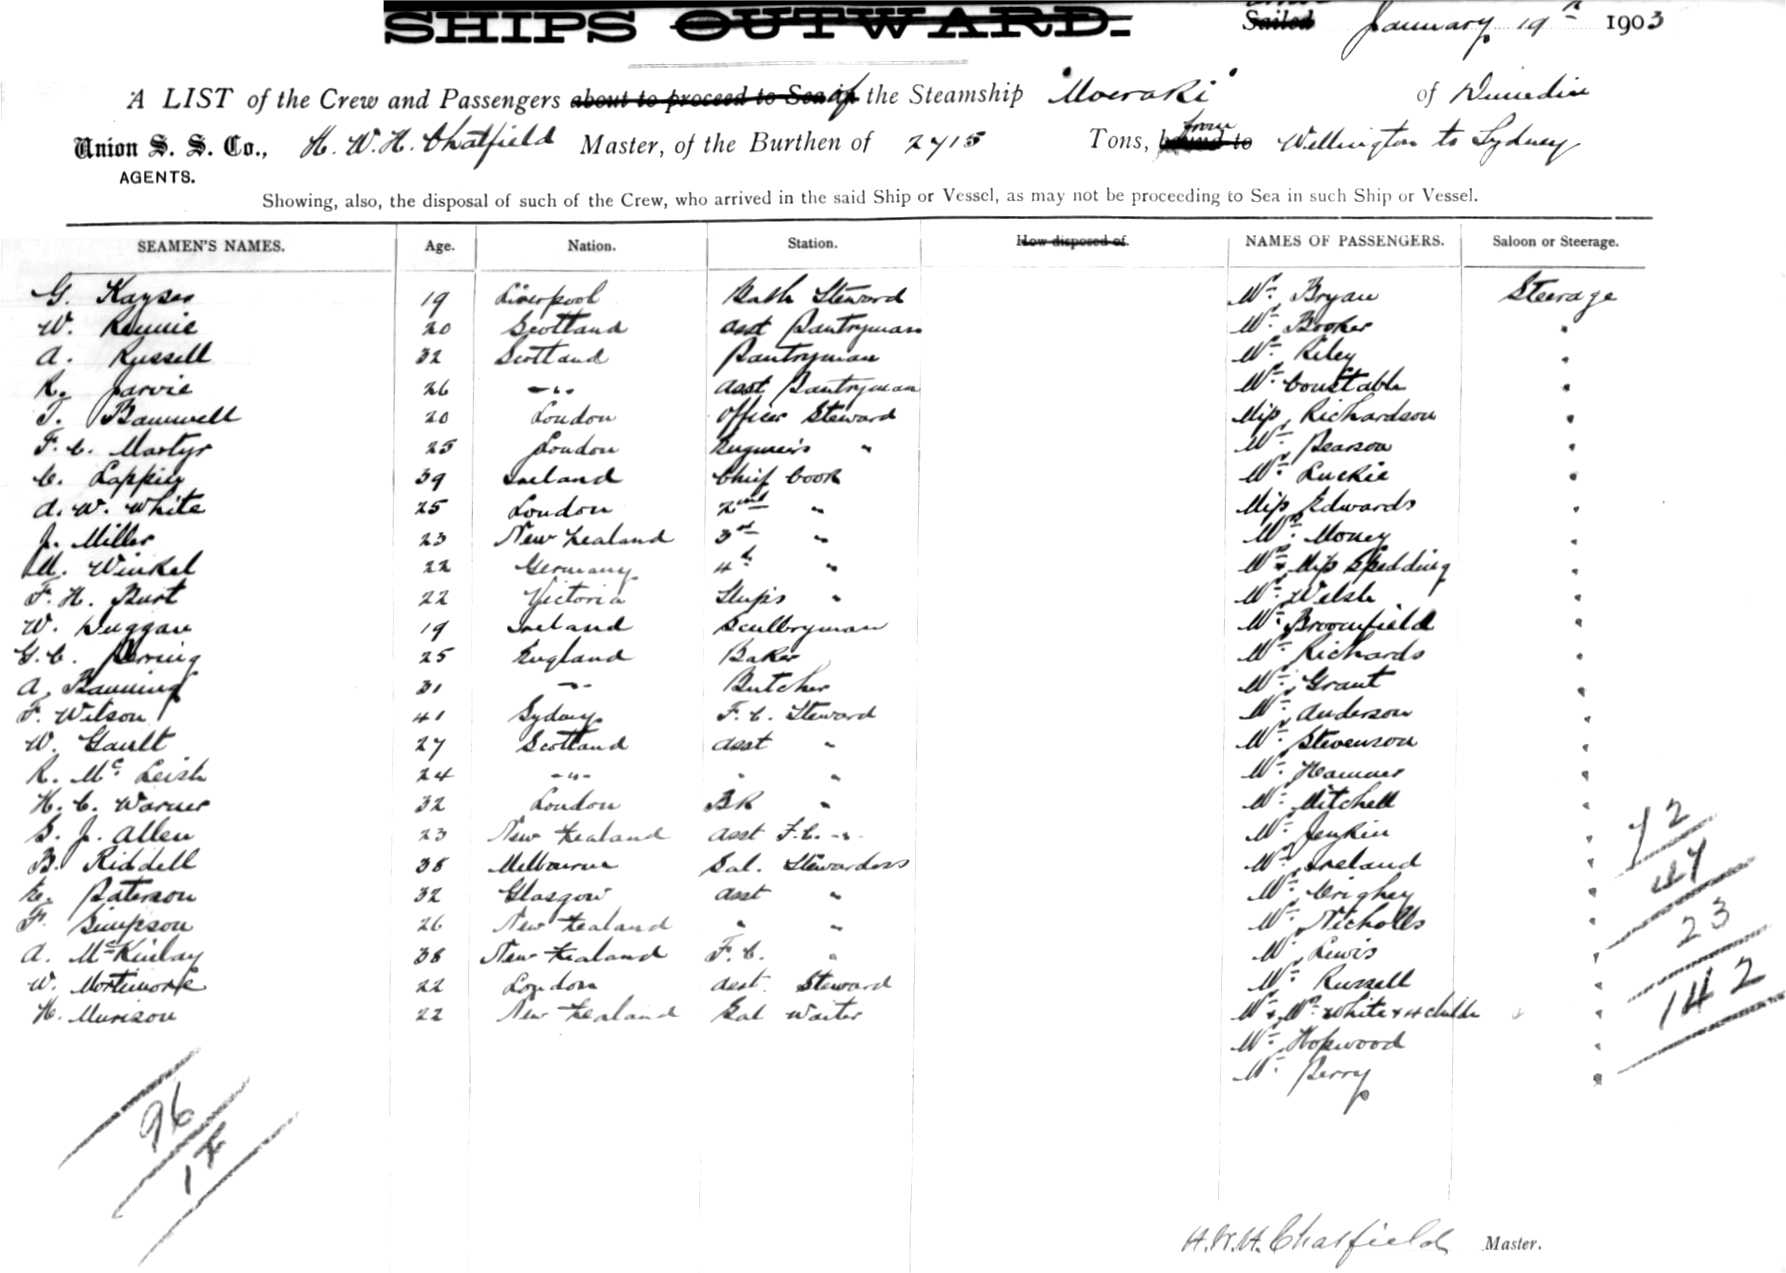 SHIPS OUTWARD.
Sailed January 19th 1903
A LIST of the Crew and Passengers about to proceed to Sea of the Steamship "Moeraki" of Dunedin
from
Union S. S. Co., H. W. H. Chatfield Master, of the Burthen of 2715 Tons, bound to Wellington to Sydney
AGENTS.
Showing, also, the disposal of such of the Crew, who arrived in the said Ship or Vessel, as may not be proceeding to Sea in such Ship or Vessel.
SEAMEN'S NAMES. Age. Nation. Station. How disposed of. NAMES OF PASSENGERS. Saloon or Steerage.
G. Kayser 19 Liverpool Bath Steward Mr. Bryan Steerage
W. Rennie 20 Scotland asst Pantryman Mr. Booker "
A. Russell 32 Scotland Pantryman Mr. Riley "
R. Jarvie 26 -"- asst Pantryman Mr. Constable "
T. Bamwell 20 London Officer Steward Miss Richardson "
F. C. Martyr 25 London Engineers " Mr. Pearson "
C. Lappin 39 Ireland Chief Cook Mr. Luckie "
A. W. White 25 London 2nd " Miss Edwards "
J. Miller 23 New Zealand 3rd " Mr. Money "
M. Winkel 22 Germany 4th " Mrs & Miss Spedding "
F. H. Burt 22 Victoria Ships " Mr. Welsh "
W. Duggan 19 Ireland Scullryman Mr. Broomfield "
G. C. Perring 25 England Baker Mr. Richards "
A. Banning 31 -"- Butcher Mr. Grant "
F. Wilson 41 Sydney F. C. Steward Mr. Anderson "
W. Gault 27 Scotland asst " Mr. Stevenson "
R. McLeish 24 -"- " " Mr. Hammer "
H. C. Warner 32 London BR " Mr. Mitchell "
S. J. Allen 23 New Zealand asst F.C. -"- Mr. Jenkin "
B. Riddell 38 Melbourne Sal. Stewardess Mr. Ireland "
E. Paterson 32 Glasgow asst " Mr. Crighey "
F. Simpson 26 New Zealand " " Mr. Nicholls "
A. McKinlay 38 New Zealand F. C. " Mr. Lewis "
W. Mortimore 22 London asst. Steward Mr. Russell "
H. Murison 22 New Zealand Sal Waiter Mr & Mrs White & 4 childn "
Mr. Hopwood "
Mr. Perry "
72
47
23
142
96
1
H. W. H. Chatfield Master.